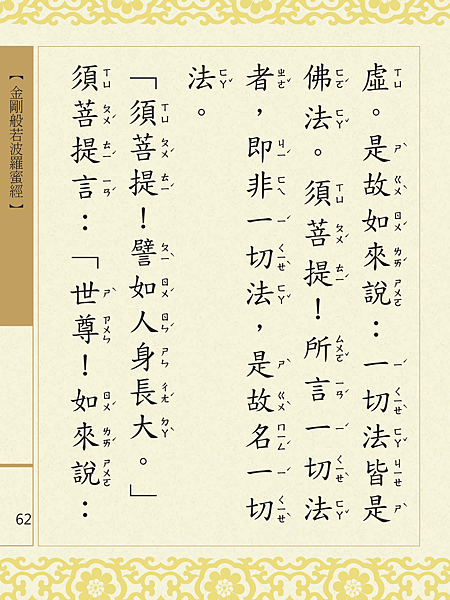 虛。是故如來說：一切法皆是
佛法。須菩提！所言一切法
者，即非一切法，是故名一切
法。
「須菩提！譬如人身長大。」
須菩提言：「世尊！如來說：
【金剛般若波羅蜜經】
62